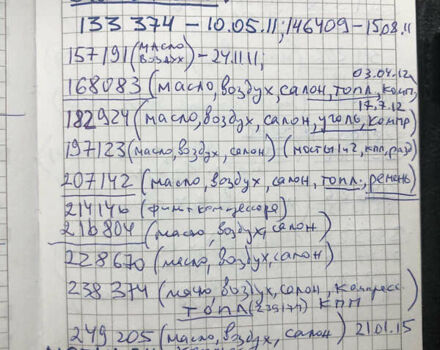 133 374 – 10.05.11; 146409 – 15.08.11
157191 (масло, воздух) – 24.11.11;
03.04.12
168083 (масло, воздух, салон, топл, комп)
17.7.12
182924 (масло, воздух, салон, уголь, компр)
197123 (масло, воздух, салон) (мосты 1 и 2, кпп, разд)
207142 (масло, воздух, салон, топл., ремень)
214146 (фильт компрессора)
218804 (масло, воздух, салон)
228670 (масло, воздух, салон)
238 374 (масло, воздух, салон, компресс.)
ТОПЛ (239177) КПП
249 205 (масло, воздух, салон) 21.01.15